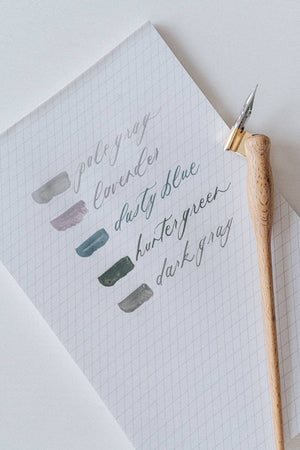 pale gray
lavender
dusty blue
hunter green
dark gray